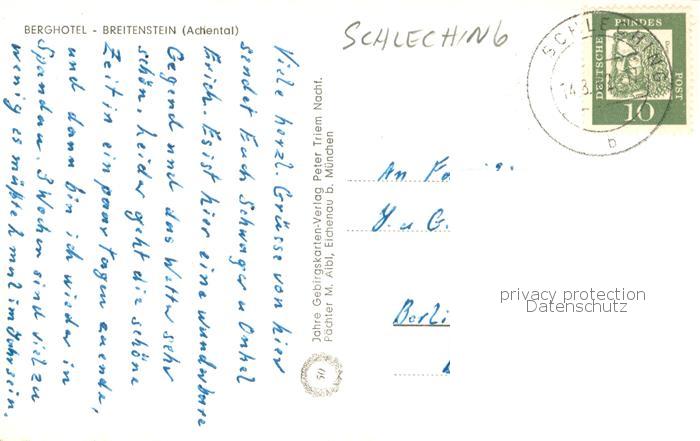 BERGHOTEL - BREITENSTEIN (Achental)
SCHLECHING
Viele herzl. Grüsse von hier
sendet Euch Schwager u Onkel
Erich. Es ist hier eine wunderbare
Gegend und das Wetter sehr
schön. Leider geht die schöne
Zeit in ein paar tagen zu ende,
und dann bin ich wieder in
Spandau. 3 Wochen sind viel zu
wenig es müßte mal im Jahr sein.
Jahre Gebirgskarten-Verlag Peter Triem Nachf.
Pächter M. Aibl, Eichenau b. München
50
SCHLECHING
14.8.
b
DEUTSCHE BUNDES POST
10
An Fa
G.
Berli
privacy protection
Datenschutz